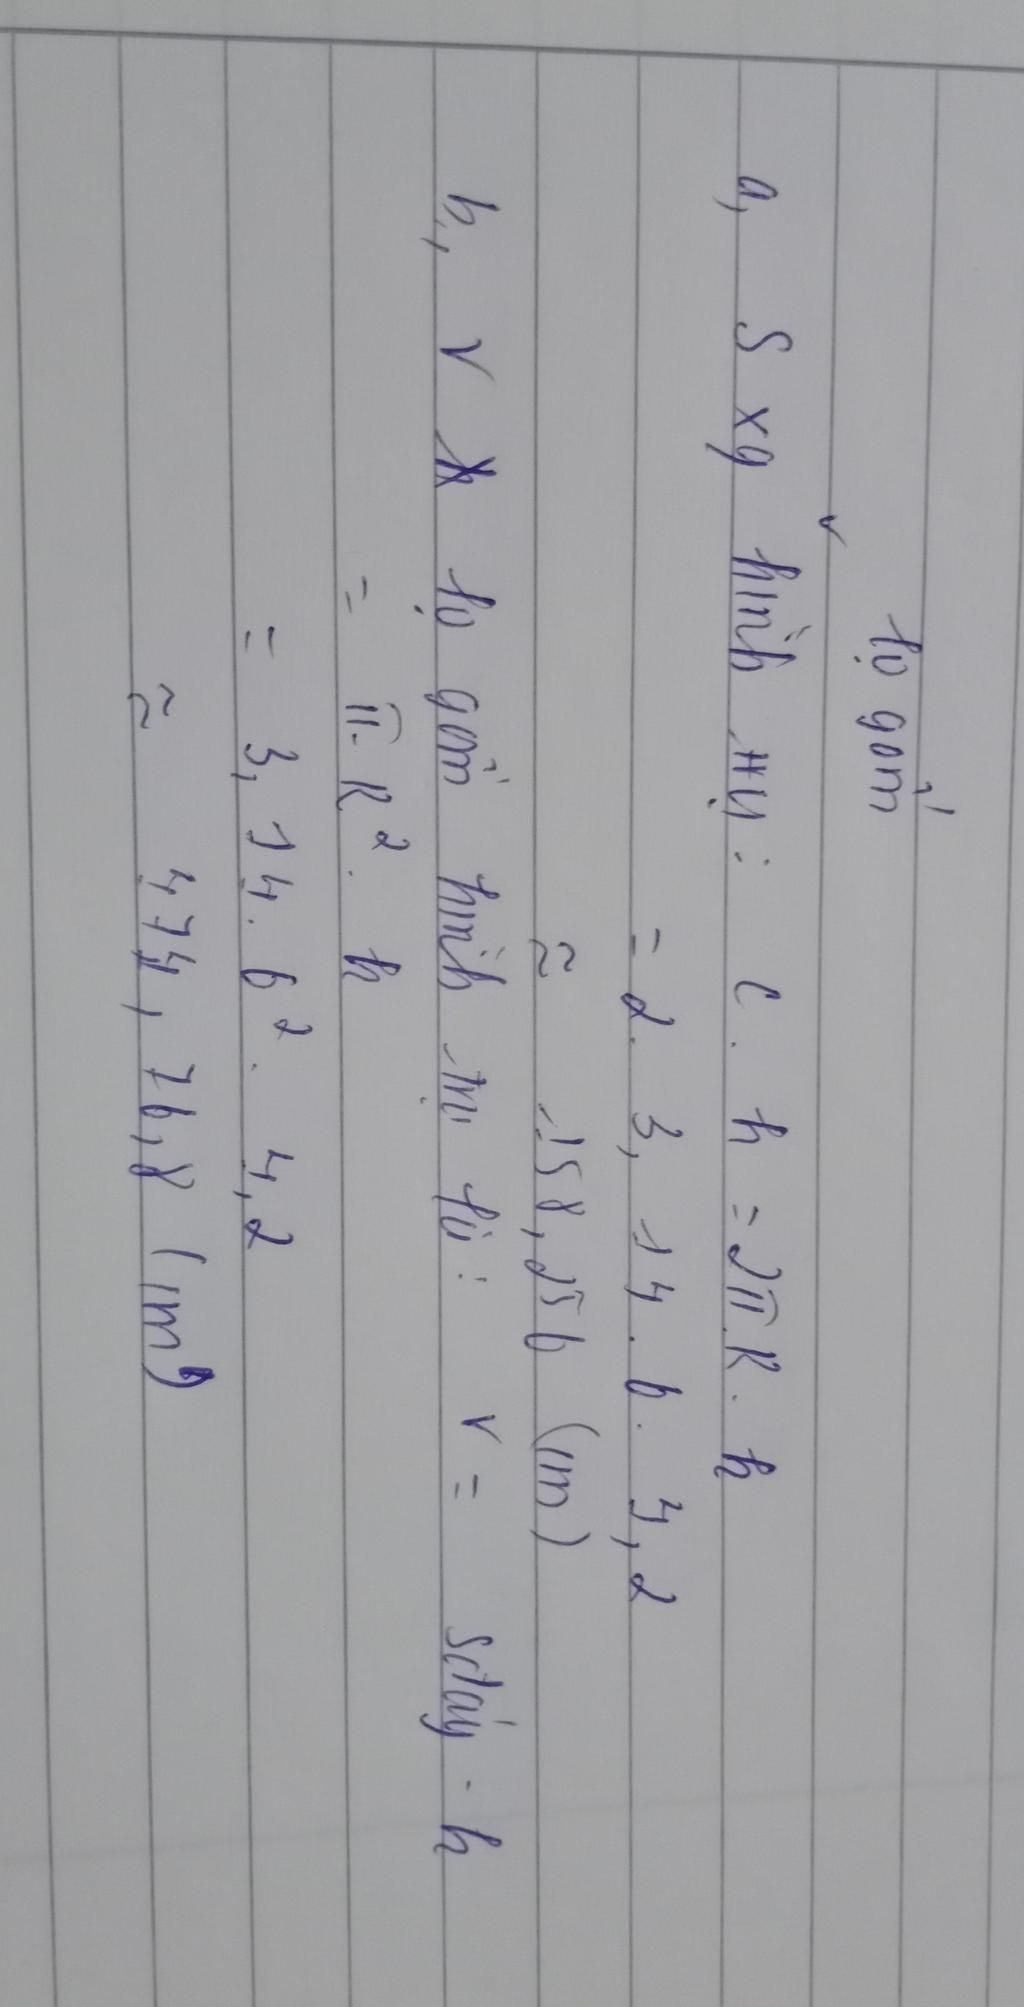 lọ gốm
a, S xq hình trụ : C . h = 2π R . h
= 2 . 3,14 . 6 . 4,2
≈ 158,256 (m)
b, V lọ gốm hình trụ là : V = Sđáy . h
= π . R² . h
= 3,14 . 6² . 4,2
≈ 474,76,8 (m)